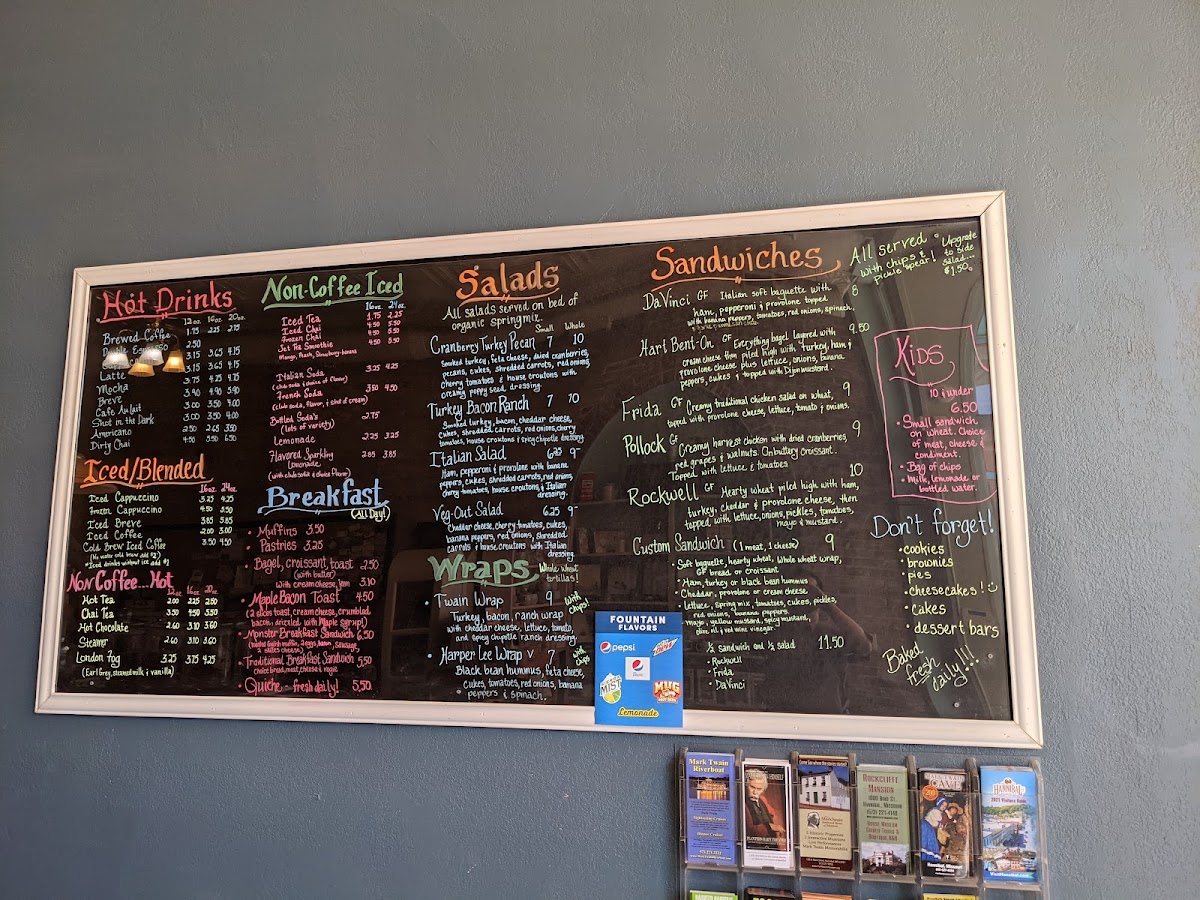 Hot Drinks
12 oz. 16 oz. 20 oz.
Brewed Coffee 1.75 2.25 2.75
2.50
3.15 3.65 4.15
Latte
Mocha 3.75 4.25 4.75
Breve 3.90 4.90 5.90
Cafe Au Lait 3.00 3.50 4.00
Shot in the Dark 3.00 3.50 4.00
Americano 2.50 2.65 3.50
Dirty Chai 4.50 5.50 6.50
Iced/Blended
16oz. 24oz.
Iced Cappuccino 3.25 4.25
Frozen Cappuccino 4.50 5.50
Iced Breve 3.85 5.85
Iced Coffee 2.00 3.00
Cold Brew Iced Coffee 3.50 4.50
Non Coffee... Hot
12oz. 16oz. 20oz.
Hot Tea 2.00 2.25 2.50
Chai Tea 3.50 4.50 5.50
Hot Chocolate 2.60 3.10 3.60
Steamer 2.60 3.10 3.60
London Fog 3.25 3.75 4.25
(Earl Grey, steamed milk & vanilla)
Non-Coffee Iced
16oz. 24oz.
Iced Tea 1.75 2.25
Iced Chai 4.50 5.50
Frozen Chai 4.50 5.50
Jet Tea Smoothie 4.50 5.50
Mango, Peach, Strawberry-banana
Italian Soda 3.25 4.25
(club soda & choice of flavor)
French Soda 3.50 4.50
(club soda, flavor, & shot of cream)
Bottled Soda's 2.75
(lots of variety)
Lemonade 2.25 3.25
Flavored Sparkling 2.85 3.85
Lemonade
(with club soda & choice flavor)
Breakfast
(All Day!)
• Muffins 3.50
• Pastries 3.25
• Bagel, croissant, toast 2.50
(with butter)
with cream cheese, jam 3.10
• Maple Bacon Toast 4.50
(2 slices toast, cream cheese, crumbled
bacon, drizzled with Maple syrup!)
• Monster Breakfast Sandwich 6.50
(toasted English muffin, 2 eggs, bacon, sausage,
2 slices cheese)
• Traditional Breakfast Sandwich 5.50
choice bread, meat, cheese & veggie
Quiche - fresh daily! 5.50
Salads
All salads served on bed of
organic spring mix.
Small Whole
Cranberry Turkey Pecan 7 10
Smoked turkey, feta cheese, dried cranberries,
pecans, cukes, shredded carrots, red onions,
cherry tomatoes & house croutons with
creamy poppy seed, dressing.
Turkey Bacon Ranch 7 10
Smoked turkey, bacon, cheddar cheese,
cukes, shredded carrots, red onions, cherry
tomatoes, house croutons & spicy chipotle dressing
Italian Salad 6.25 9-
Ham, pepperoni & provolone with banana
peppers, cukes, shredded carrots, red onions,
cherry tomatoes, house croutons & Italian
dressing.
Veg-Out Salad 6.25 9-
Cheddar cheese, cherry tomatoes, cukes,
banana peppers, red onions, shredded
carrots & house croutons with Italian
dressing
Wraps
Whole wheat
tortillas!
• Twain Wrap 9 with
chips!
Turkey, bacon, ranch wrap
with cheddar cheese, lettuce, tomato,
and spicy chipotle ranch dressing.
• Harper Lee Wrap v 7 with
chips
Black bean hummus, feta cheese,
cukes, tomatoes, red onions, banana
peppers & spinach.
Sandwiches
DaVinci GF Italian soft baguette with 8
ham, pepperoni & provolone topped
with banana peppers, tomatoes, red onions, spinach,
Hart Bent-On GF Everything bagel layered with 9.50
cream cheese then piled high with turkey, ham, &
provolone cheese plus lettuce, onions, banana
peppers, cukes & topped with Dijon mustard.
Frida GF Creamy traditional chicken salad on wheat, 9
topped with provolone cheese, lettuce, tomato & onions.
Pollock GF Creamy harvest chicken with dried cranberries, 9
red grapes & walnuts. On buttery croissant.
Topped with lettuce & tomatoes
Rockwell GF Hearty wheat piled high with ham, 10
turkey, cheddar & provolone cheese, then
topped with lettuce, onions, pickles, tomatoes,
mayo & mustard.
Custom Sandwich (1 meat, 1 cheese) 9
• Soft baguette, hearty wheat, whole wheat wrap,
GF bread, or croissant
• Ham, turkey or black bean hummus
• Cheddar, provolone or cream cheese
• Lettuce, spring mix, tomatoes, cukes, pickles,
red onions, banana peppers
• mayo, yellow mustard, spicy mustard,
olive oil & red wine vinegar
½ sandwich and ½ salad 11.50
• Rockwell
• Frida
• DaVinci
All served
with chips &
pickle spear!
Upgrade
to side
salad...
$1.50
Kids
10 & under
6.50
• Small sandwich
on wheat. Choice
of meat, cheese &
condiment.
• Bag of chips
• Milk, lemonade or
bottled water.
Don't forget!
• cookies
• brownies
• pies
• cheesecakes!
• cakes
• dessert bars
Baked
fresh
daily!!!
FOUNTAIN
FLAVORS
pepsi
MIST
MUG
Lemonade
Mark Twain
Riverboat
ROCKCLIFFE
MANSION
CAVE
HANNIBAL
2021 Visitors Guide